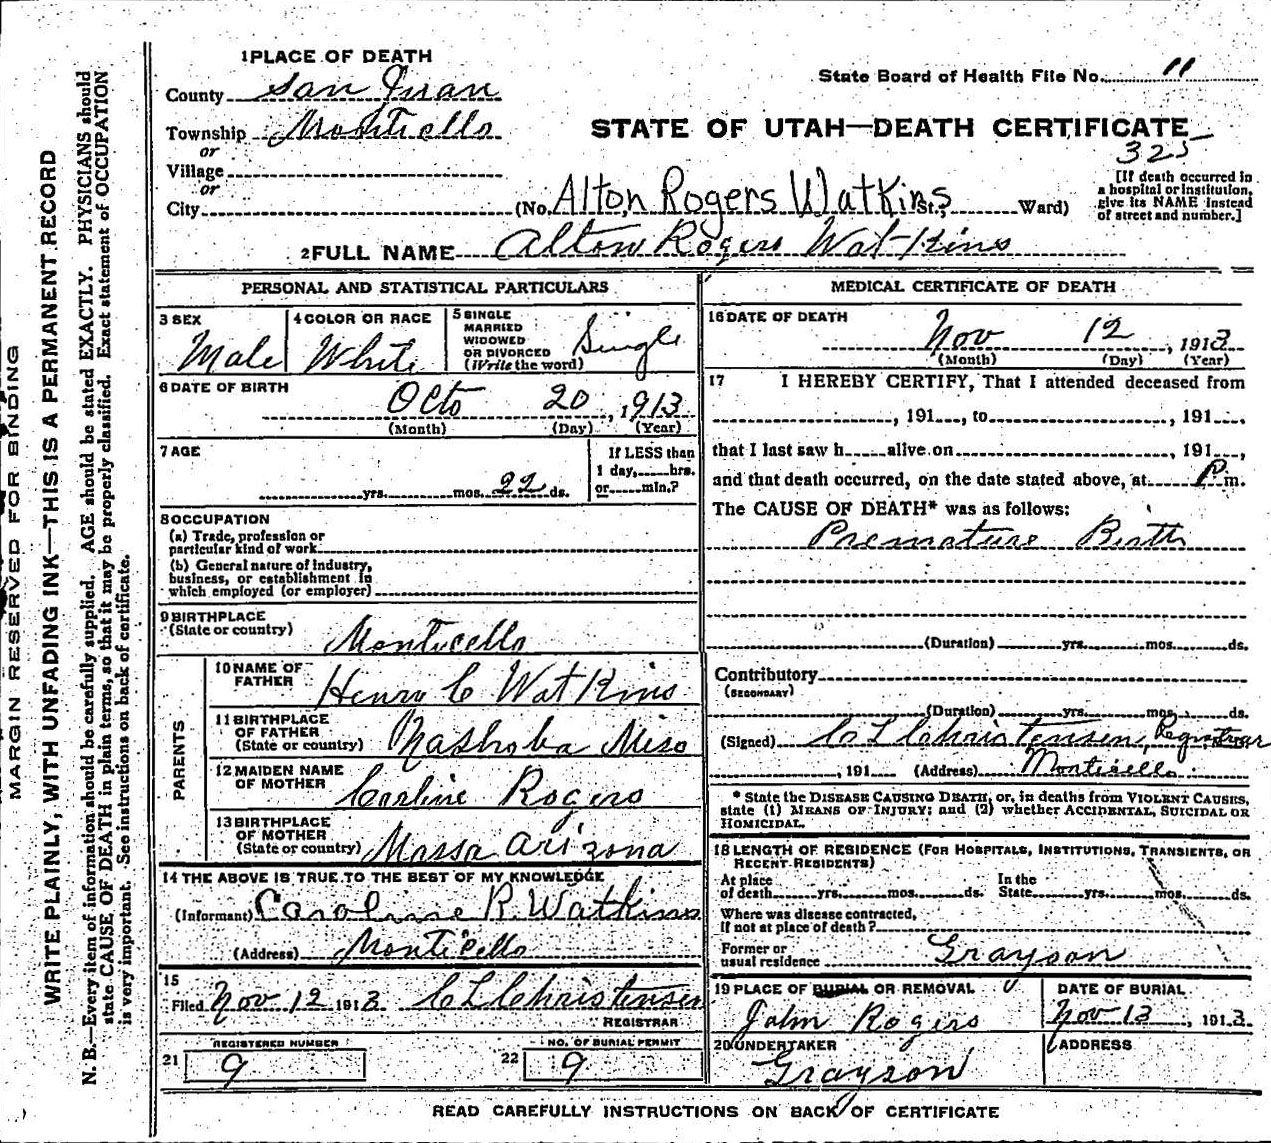 MARGIN RESERVED FOR BINDING
WRITE PLAINLY, WITH UNFADING INK—THIS IS A PERMANENT RECORD
N. B.—Every item of information should be carefully supplied. AGE should be stated EXACTLY. PHYSICIANS should
state CAUSE OF DEATH in plain terms, so that it may be properly classified. Exact statement of OCCUPATION
is very important. See instructions on back of certificate.
1 PLACE OF DEATH
County San Juan
Township Monticello
or
Village
or
City
State Board of Health File No. 11
STATE OF UTAH—DEATH CERTIFICATE
325
[If death occurred in
a hospital or institution,
give its NAME instead
of street and number.]
(No. Alton Rogers Watkins St., Ward)
2 FULL NAME Alton Rogers Watkins
PERSONAL AND STATISTICAL PARTICULARS
3 SEX
Male
4 COLOR OR RACE
White
5 SINGLE
MARRIED
WIDOWED
OR DIVORCED
(Write the word)
Single
6 DATE OF BIRTH
Octo 20, 1913
(Month) (Day) (Year)
7 AGE
yrs. mos. 22 ds.
If LESS than
1 day, hrs.
or min.?
8 OCCUPATION
(a) Trade, profession or
particular kind of work
(b) General nature of industry,
business, or establishment in
which employed (or employer)
9 BIRTHPLACE
(State or country)
Monticello
PARENTS
10 NAME OF
FATHER
Henry C Watkins
11 BIRTHPLACE
OF FATHER
(State or country)
Nashoba Miso
12 MAIDEN NAME
OF MOTHER
Carline Rogers
13 BIRTHPLACE
OF MOTHER
(State or country)
Massa Arizona
14 THE ABOVE IS TRUE TO THE BEST OF MY KNOWLEDGE
(Informant) Caroline R. Watkins
(Address) Monticello
15
Filed Nov 12 1913 C L Christensen
REGISTRAR
REGISTERED NUMBER
21 9
NO. OF BURIAL PERMIT
22 9
MEDICAL CERTIFICATE OF DEATH
16 DATE OF DEATH
Nov 12, 1913
(Month) (Day) (Year)
17 I HEREBY CERTIFY, That I attended deceased from
, 191 , to , 191 ,
that I last saw h alive on , 191 ,
and that death occurred, on the date stated above, at P m.
The CAUSE OF DEATH* was as follows:
Premature Birth
(Duration) yrs. mos. ds.
Contributory
(SECONDARY)
(Duration) yrs. mos. ds.
(Signed) C L Christensen, Registrar
, 191 (Address) Monticello
* State the DISEASE CAUSING DEATH, or, in deaths from VIOLENT CAUSES,
state (1) MEANS OF INJURY; and (2) whether ACCIDENTAL, SUICIDAL OR
HOMICIDAL.
18 LENGTH OF RESIDENCE (FOR HOSPITALS, INSTITUTIONS, TRANSIENTS, OR
RECENT RESIDENTS)
At place
of death yrs. mos. ds.
In the
State yrs. mos. ds.
Where was disease contracted,
If not at place of death?
Former or
usual residence Grayson
19 PLACE OF BURIAL OR REMOVAL
John Rogers
DATE OF BURIAL
Nov 13, 1913
20 UNDERTAKER
Grayson
ADDRESS
READ CAREFULLY INSTRUCTIONS ON BACK OF CERTIFICATE